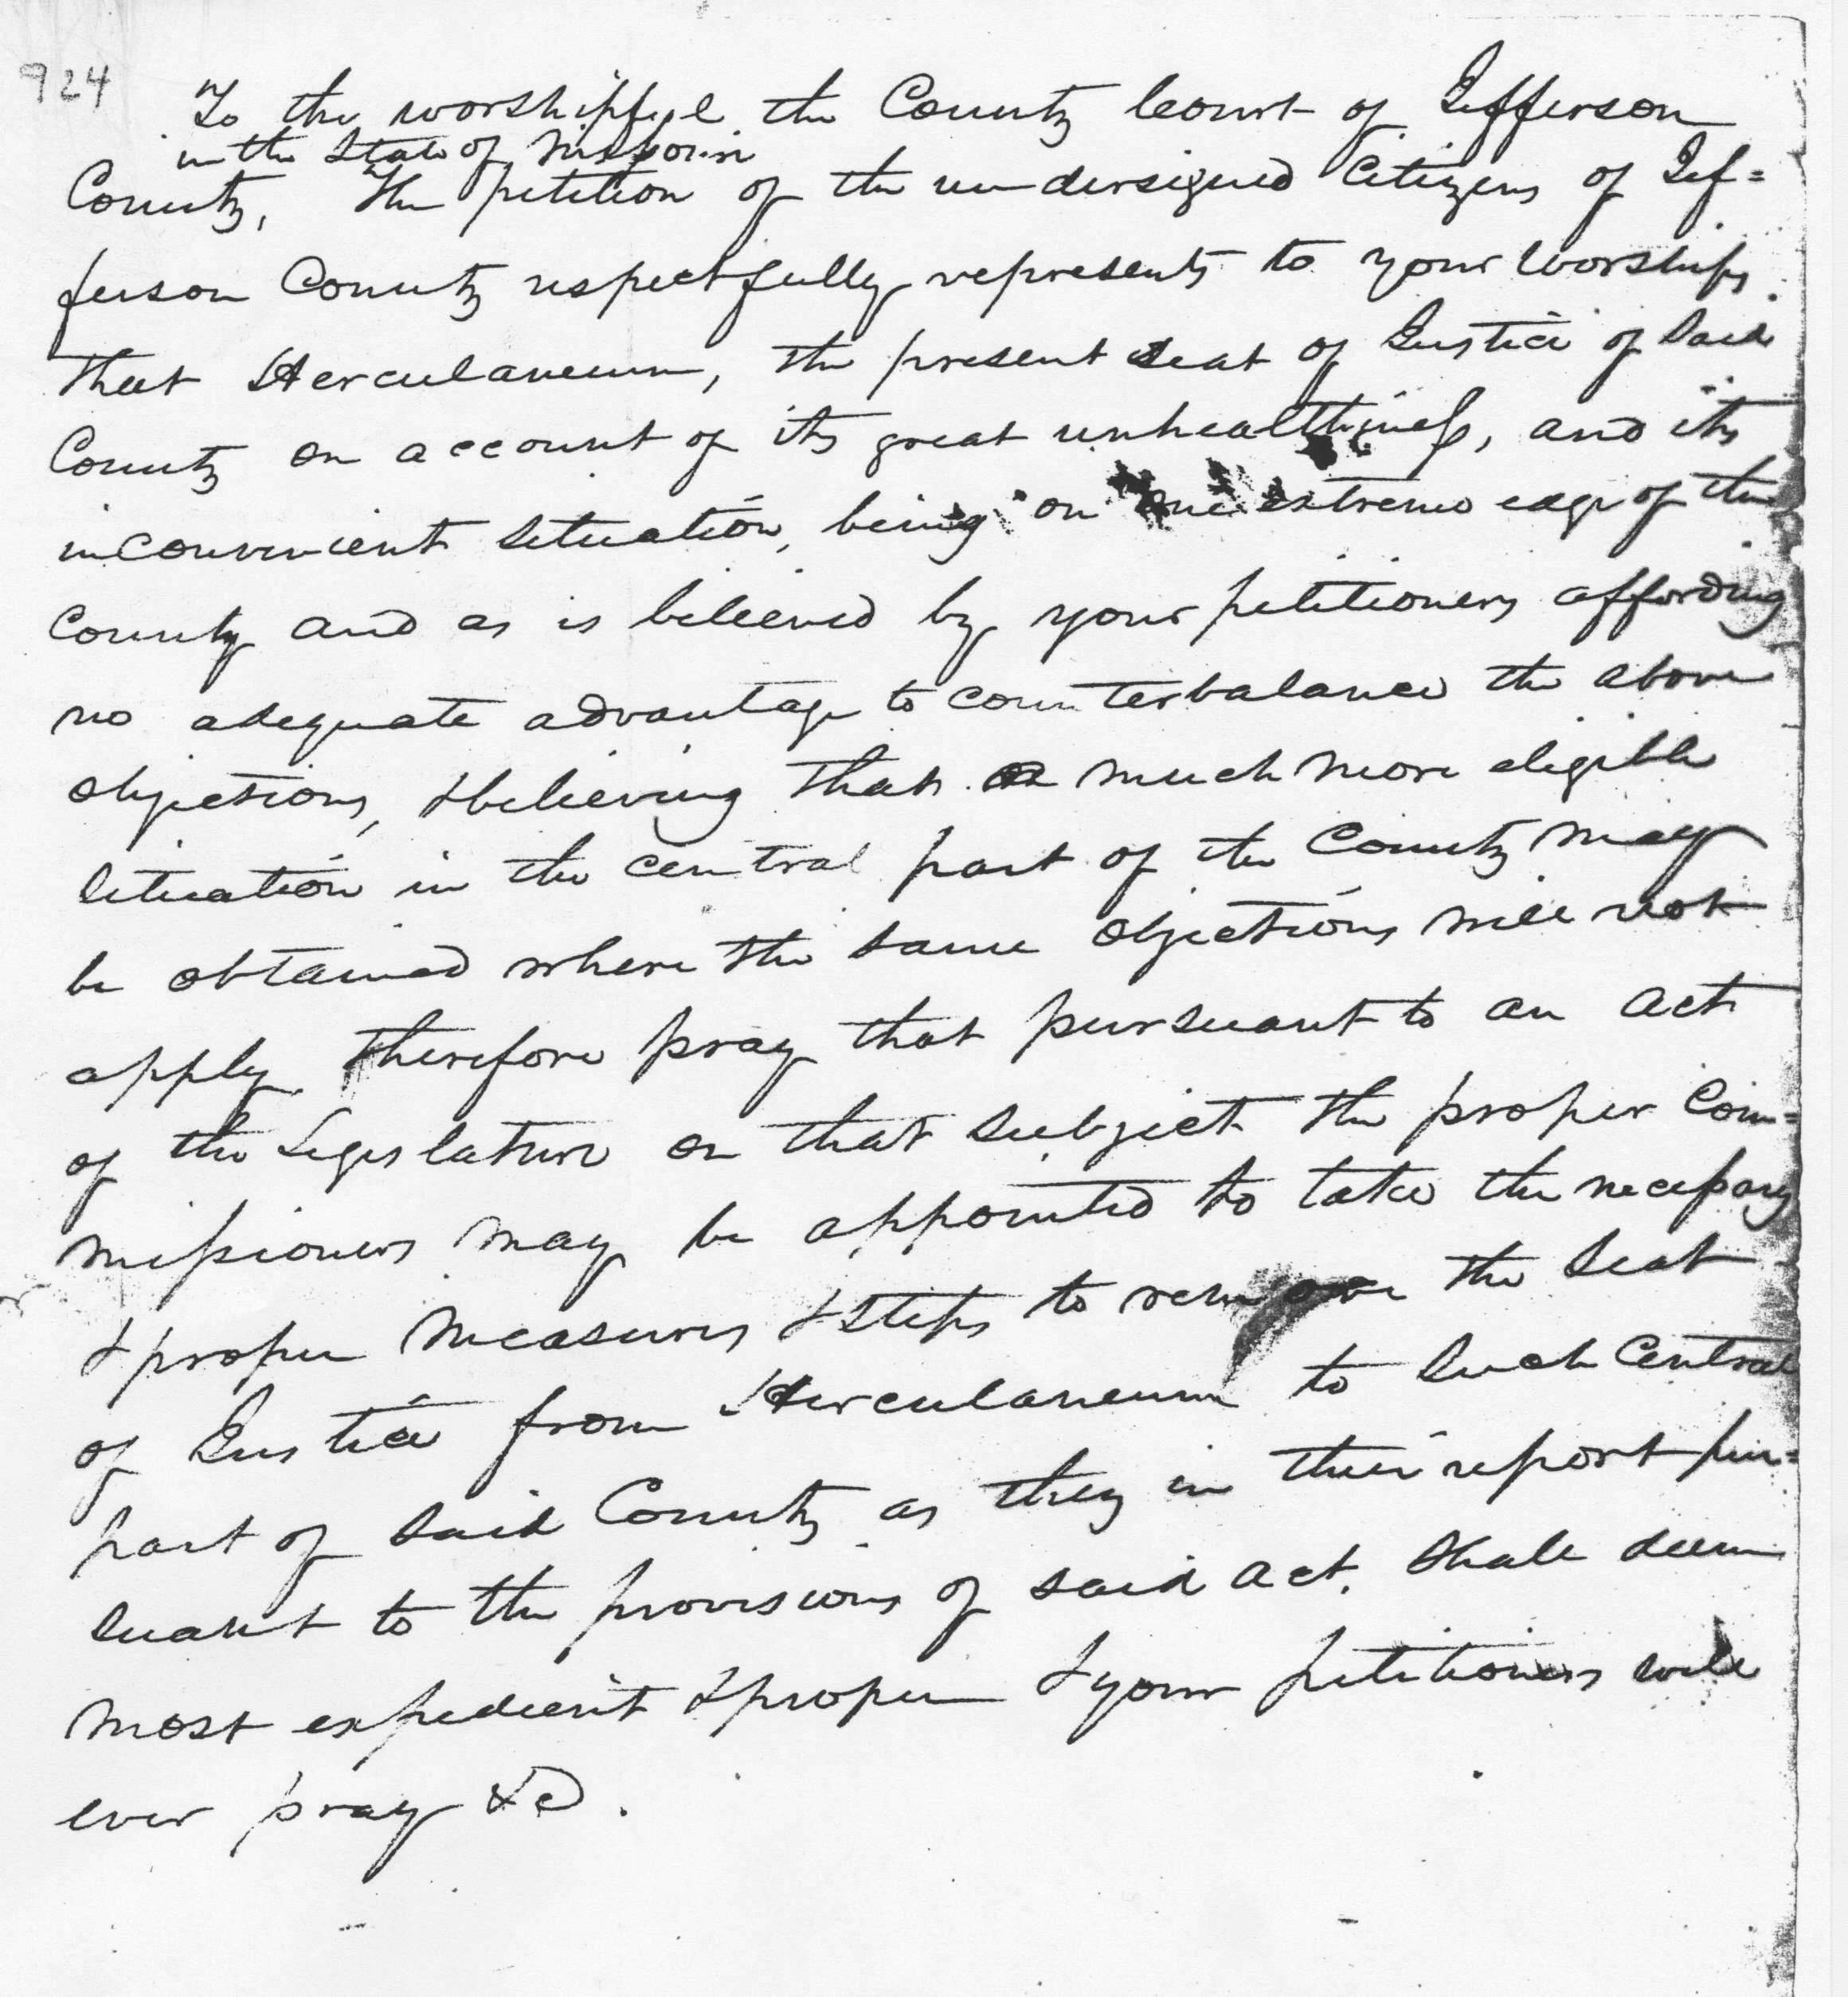 924
To the worshipful the County Court of Jefferson
in the State of Missouri
County, The petition of the undersigned Citizens of Jef=
ferson County respectfully represents to your worships
that Herculaneum, the present seat of Justice of said
County on account of its great unhealthiness, and its
inconvenient situation, being on one extreme edge of the
County and as is believed by your petitioners affording
no adequate advantage to counterbalance the above
objections, & believing that a much more eligible
situation in the central part of the County may
be obtained where the same objections will not
apply, therefore pray that pursuant to an act
of the Legislature on that subject the proper Com=
missioners may be appointed to take the necessary
& proper measures & steps to remove the seat
of Justice from Herculaneum to such Central
part of said County as they in their report pur=
suant to the provisions of said act, shall deem
most expedient & proper & your petitioners will
ever pray &c.